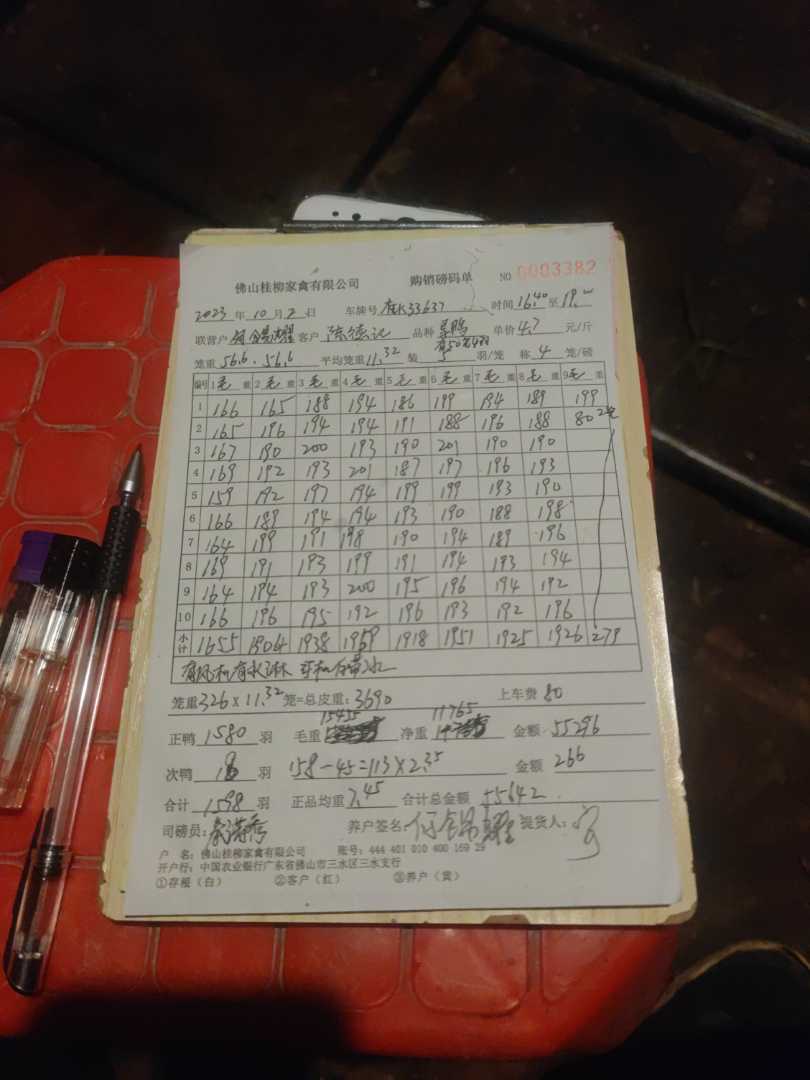 佛山桂柳家禽有限公司 购销磅码单 NO 0003382
2023 年 10 月 2 日 车牌号 33637 时间 16:40 至 19:
联营户 客户 陈德记 品种 单价 4.7 元/斤
笼重 56.6、56.6 平均笼重 11.32 装 5 羽/笼 称 4 笼/磅
编号 1毛重 2毛重 3毛重 4毛重 5毛重 6毛重 7毛重 8毛重 9毛重
1 166 165 188 194 186 199 194 189 199
2 165 196 194 194 191 188 196 188 80
3 167 190 200 193 190 201 190 190
4 169 192 193 201 187 197 196 193
5 159 192 197 194 199 199 193 190
6 166 189 194 194 193 190 188 198
7 164 199 191 198 190 194 189 196
8 169 191 193 199 191 194 193 194
9 164 194 193 200 195 196 194 192
10 166 196 195 192 196 193 192 196
小计 1655 1904 1938 1959 1918 1951 1925 1926 279
笼重 326 × 11.32 笼=总皮重: 3690 上车费 80
正鸭 1580 羽 毛重 15455 净重 11765 金额 55296
次鸭 18 羽 158-45=113×2.35 金额 266
合计 1598 羽 正品均重 7.45 合计总金额 55642
司磅员: 养户签名: 提货人:
户 名: 佛山桂柳家禽有限公司 账号: 444 401 010 400 169 29
开户行: 中国农业银行广东省佛山市三水区三水支行
①存根(白) ②客户(红) ③养户(黄)